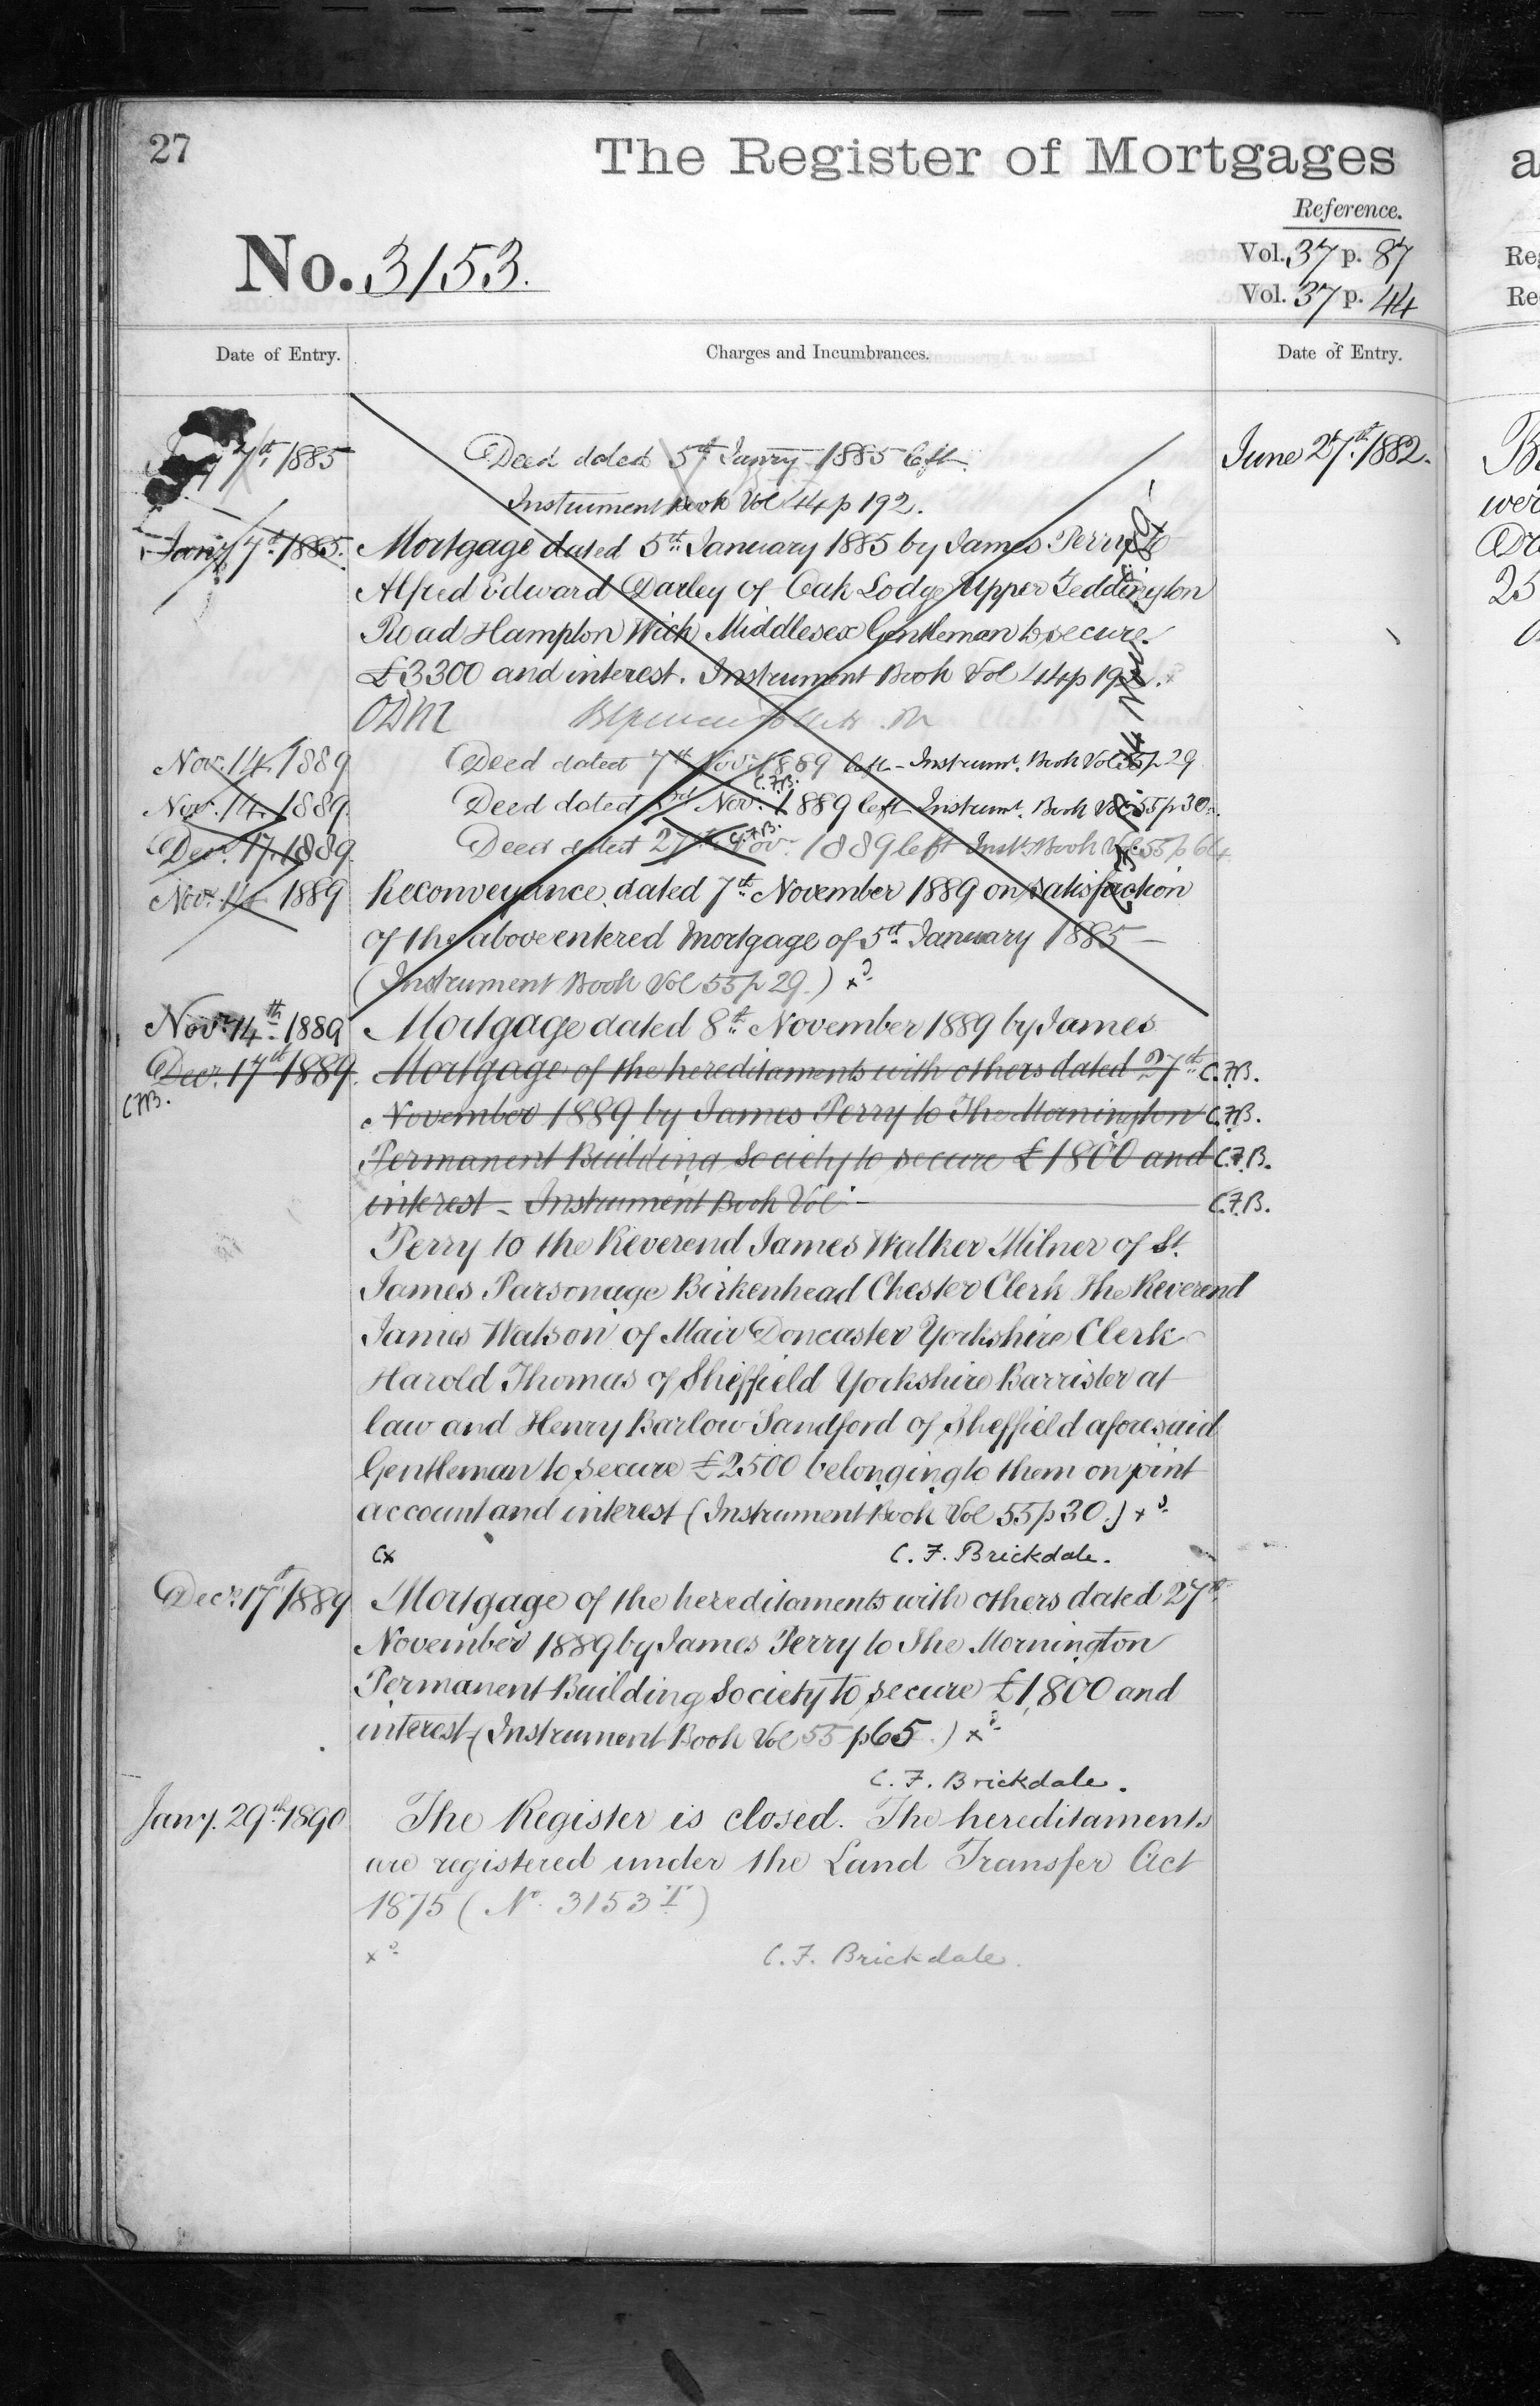 27
The Register of Mortgages
Reference.
No. 3153.
Vol. 37 p. 87
Vol. 37 p. 44
Date of Entry. Charges and Incumbrances. Date of Entry.
7th 1885 Deed dated 5th Janry 1885 left June 27th 1882.
Instrument Book Vol 44 p 192.
Jany 7th 1885. Mortgage dated 5th January 1885 by James Perry to
Alfred Edward Darley of Oak Lodge Upper Teddington
Road Hampton Wick Middlesex Gentleman to secure
£3300 and interest. Instrument Book Vol 44 p 192.
Nov. 14. 1889 Deed dated 7th Nov. 1889 left - Instrumt. Book Vol 55 p 29
C.F.B.
Nov. 14. 1889. Deed dated Nov. 1889 left Instrumt. Book Vol 55 p 30.
C.F.B.
Dec. 17. 1889. Deed dated 27th Nov. 1889 left Inst. Book Vol 55 p 64
Nov. 14 1889 Reconveyance dated 7th November 1889 on satisfaction
of the above entered Mortgage of 5th January 1885 —
(Instrument Book Vol 55 p 29.)
Novr. 14th 1889 Mortgage dated 8th November 1889 by James
Decr. 17th 1889. Mortgage of the hereditaments with others dated 27th C.F.B.
C.F.B. November 1889 by James Perry to The Mornington C.F.B.
Permanent Building Society to secure £1800 and C.F.B.
interest - Instrument Book Vol C.F.B.
Perry to the Reverend James Walker Milner of St.
James Parsonage Birkenhead Chester Clerk The Reverend
James Watson of Mair Doncaster Yorkshire Clerk
Harold Thomas of Sheffield Yorkshire Barrister at
law and Henry Barlow Sandford of Sheffield aforesaid
Gentleman to secure £2500 belonging to them on joint
account and interest (Instrument Book Vol 55 p 30.)
Cx C. F. Brickdale.
Decr. 17th 1889 Mortgage of the hereditaments with others dated 27th
November 1889 by James Perry to The Mornington
Permanent Building Society to secure £1,800 and
interest (Instrument Book Vol 55 p 65.)
C. F. Brickdale.
Jany. 29th 1890 The Register is closed. The hereditaments
are registered under the Land Transfer Act
1875 (No. 3153 T)
C. F. Brickdale.